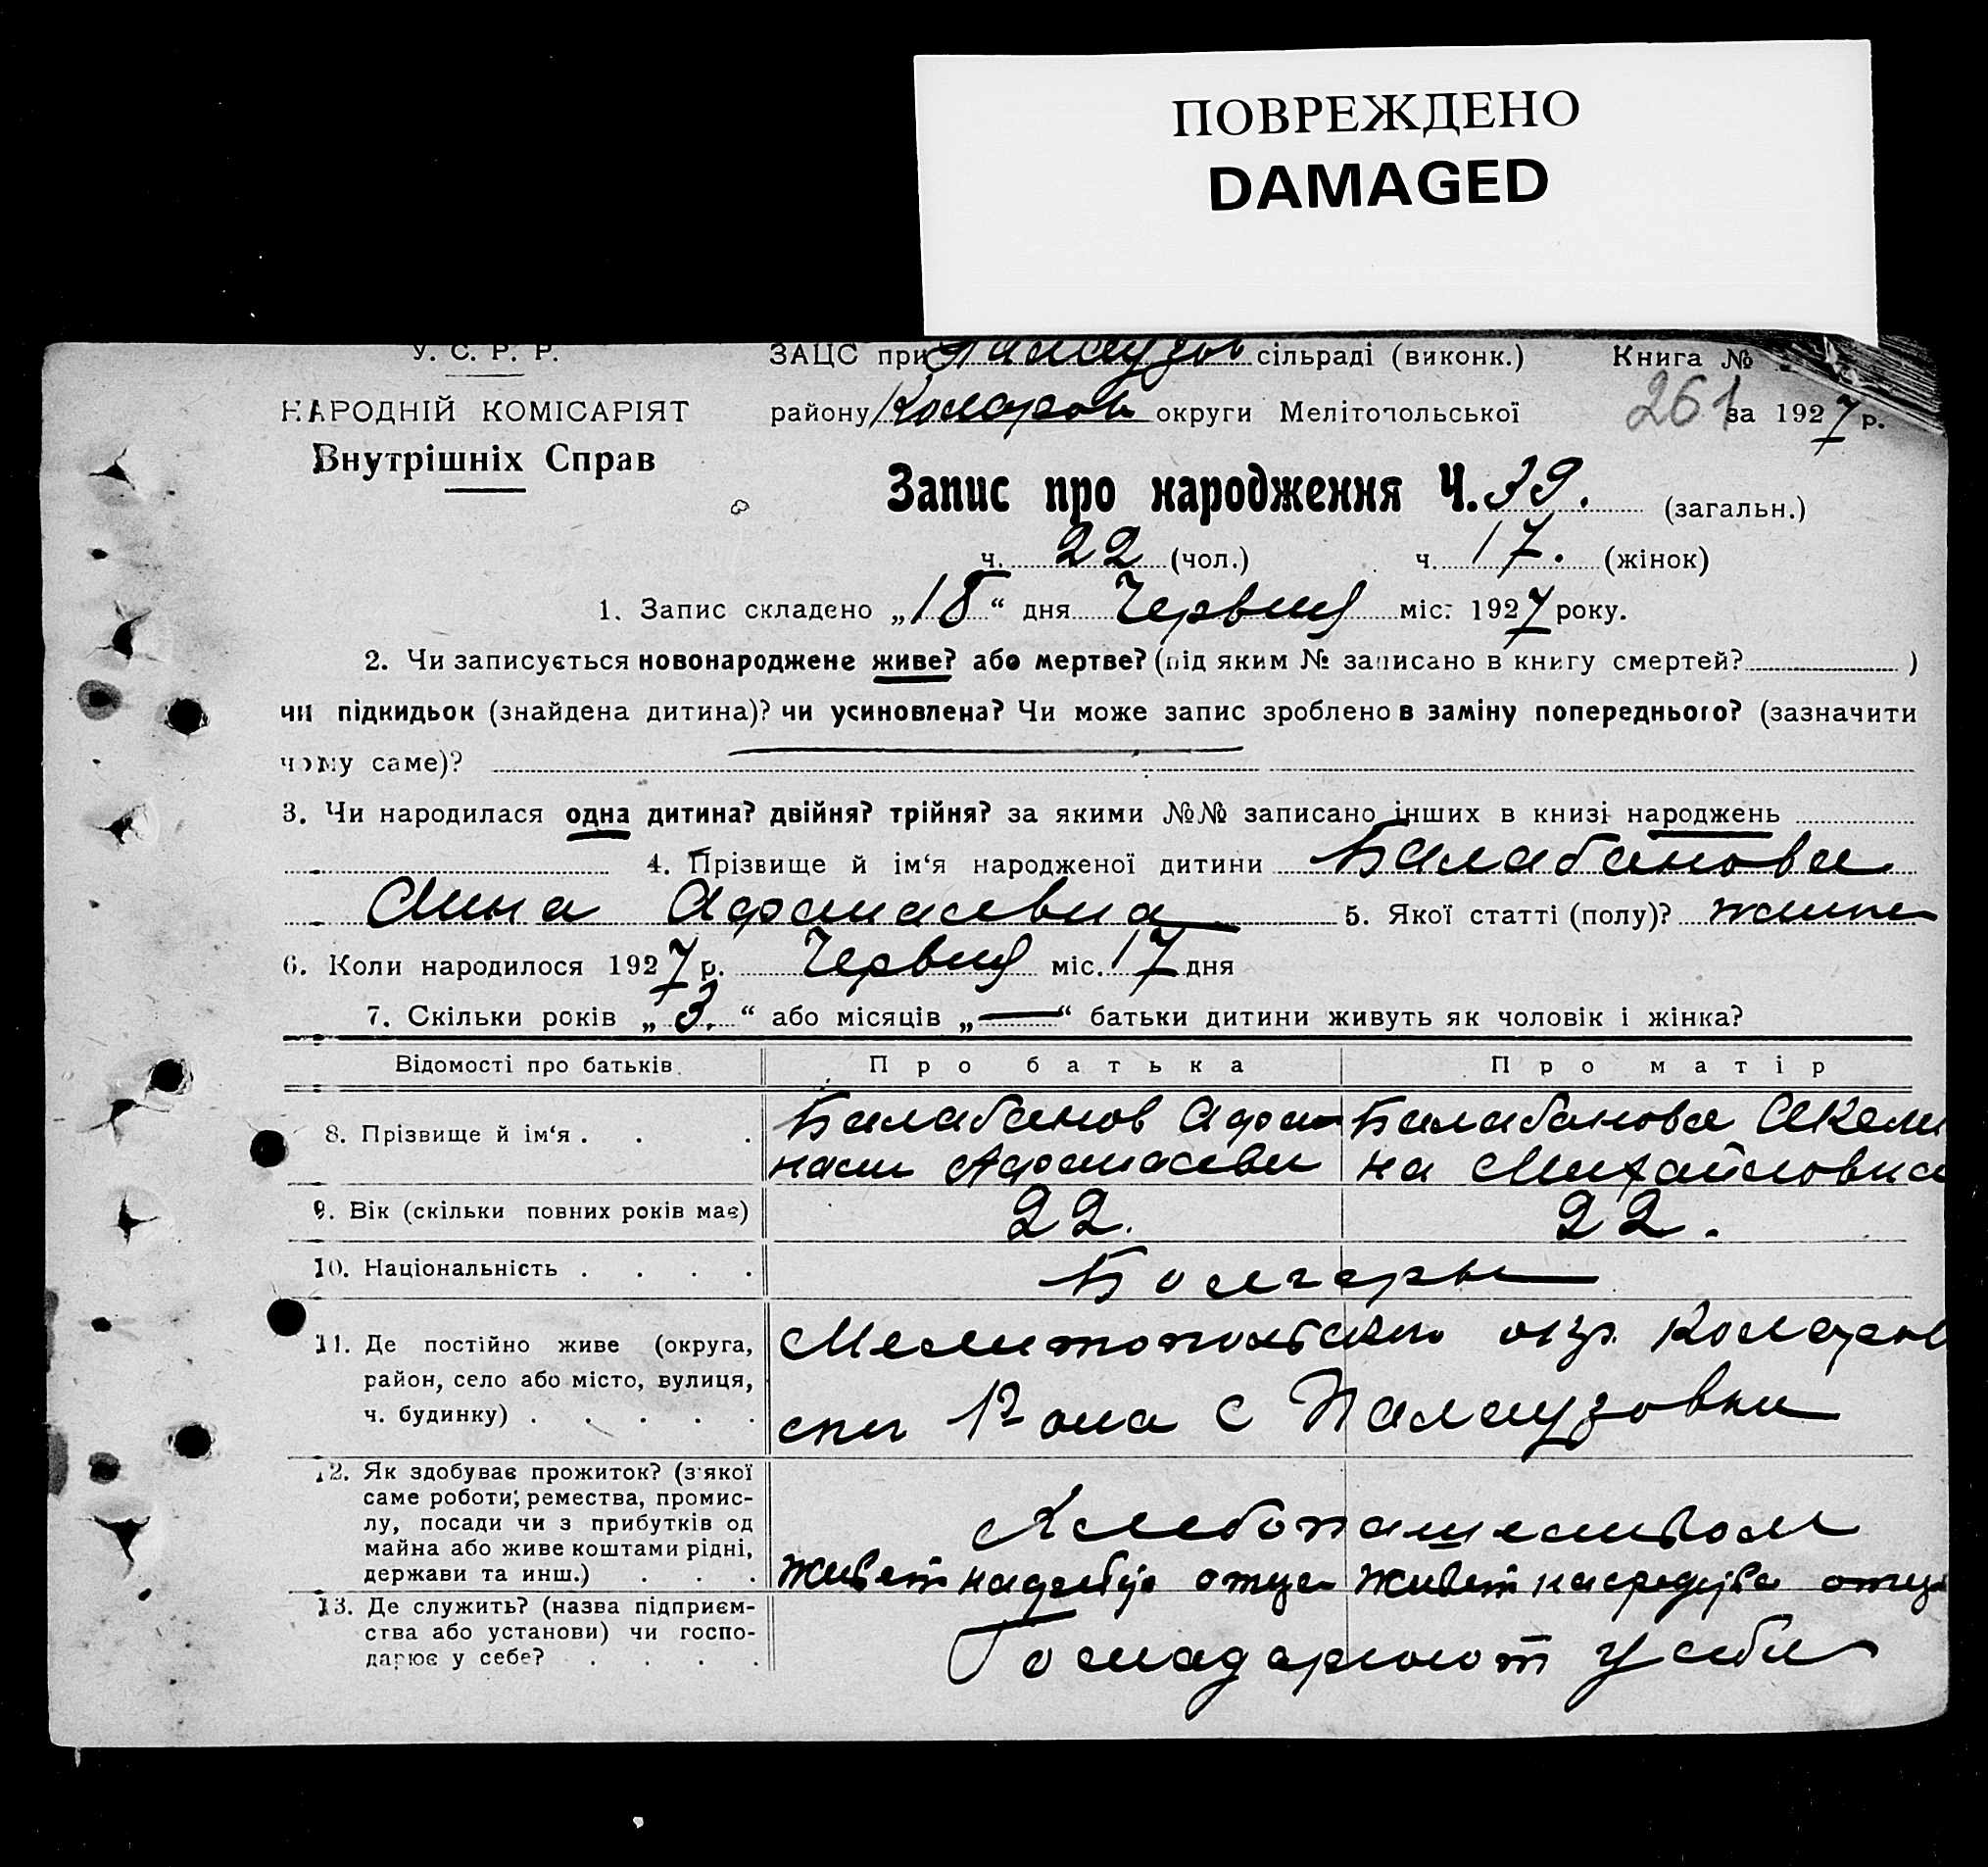 ПОВРЕЖДЕНО
DAMAGED
У. С. Р. Р.
ЗАЦС при Палаузов сільраді (виконк.) Книга №
НАРОДНІЙ КОМІСАРІЯТ
району Коларов округи Мелітопольської 261 за 1927 р.
Внутрішніх Справ
Запис про народження Ч. 39. (загальн.)
ч. 22 (чол.) ч. 17. (жінок)
1. Запис складено „18“ дня Червня міс. 1927 року.
2. Чи записується новонароджене живе? або мертве? (під яким № записано в книгу смертей? )
чи підкидьок (знайдена дитина)? чи усиновлена? Чи може запис зроблено в заміну попереднього? (зазначити
чому саме)?
3. Чи народилася одна дитина? двійня? трійня? за якими №№ записано інших в книзі народжень
4. Прізвище й ім‘я народженої дитини Балабанова
Анна Афанасевна 5. Якої статті (полу)?
6. Коли народилося 1927 р. Червня міс. 17 дня
7. Скільки років „3.“ або місяців „—“ батьки дитини живуть як чоловік і жінка?
Відомості про батьків. Про батька Про матір
8. Прізвище й ім‘я . . . Балабанов Афа- Балабанова Акели
наси Афанасеви на Михайловна
9. Вік (скільки повних років має) 22. 22.
10. Національність . . . . Болгары
11. Де постійно живе (округа, Мелитопольскаго окр. Коларов
район, село або місто, вулиця,
ч. будинку) . . . . . Р-она с Палаузовки
12. Як здобуває прожиток? (з якої
саме роботи, ремества, промис-
лу, посади чи з прибутків од Хлебопашеством
майна або живе коштами рідні,
держави та инш.) . . . живет отца живет отца
13. Де служить? (назва підприєм-
ства або установи) чи госпо- Господарюют у себе
дарює у себе? . . . .